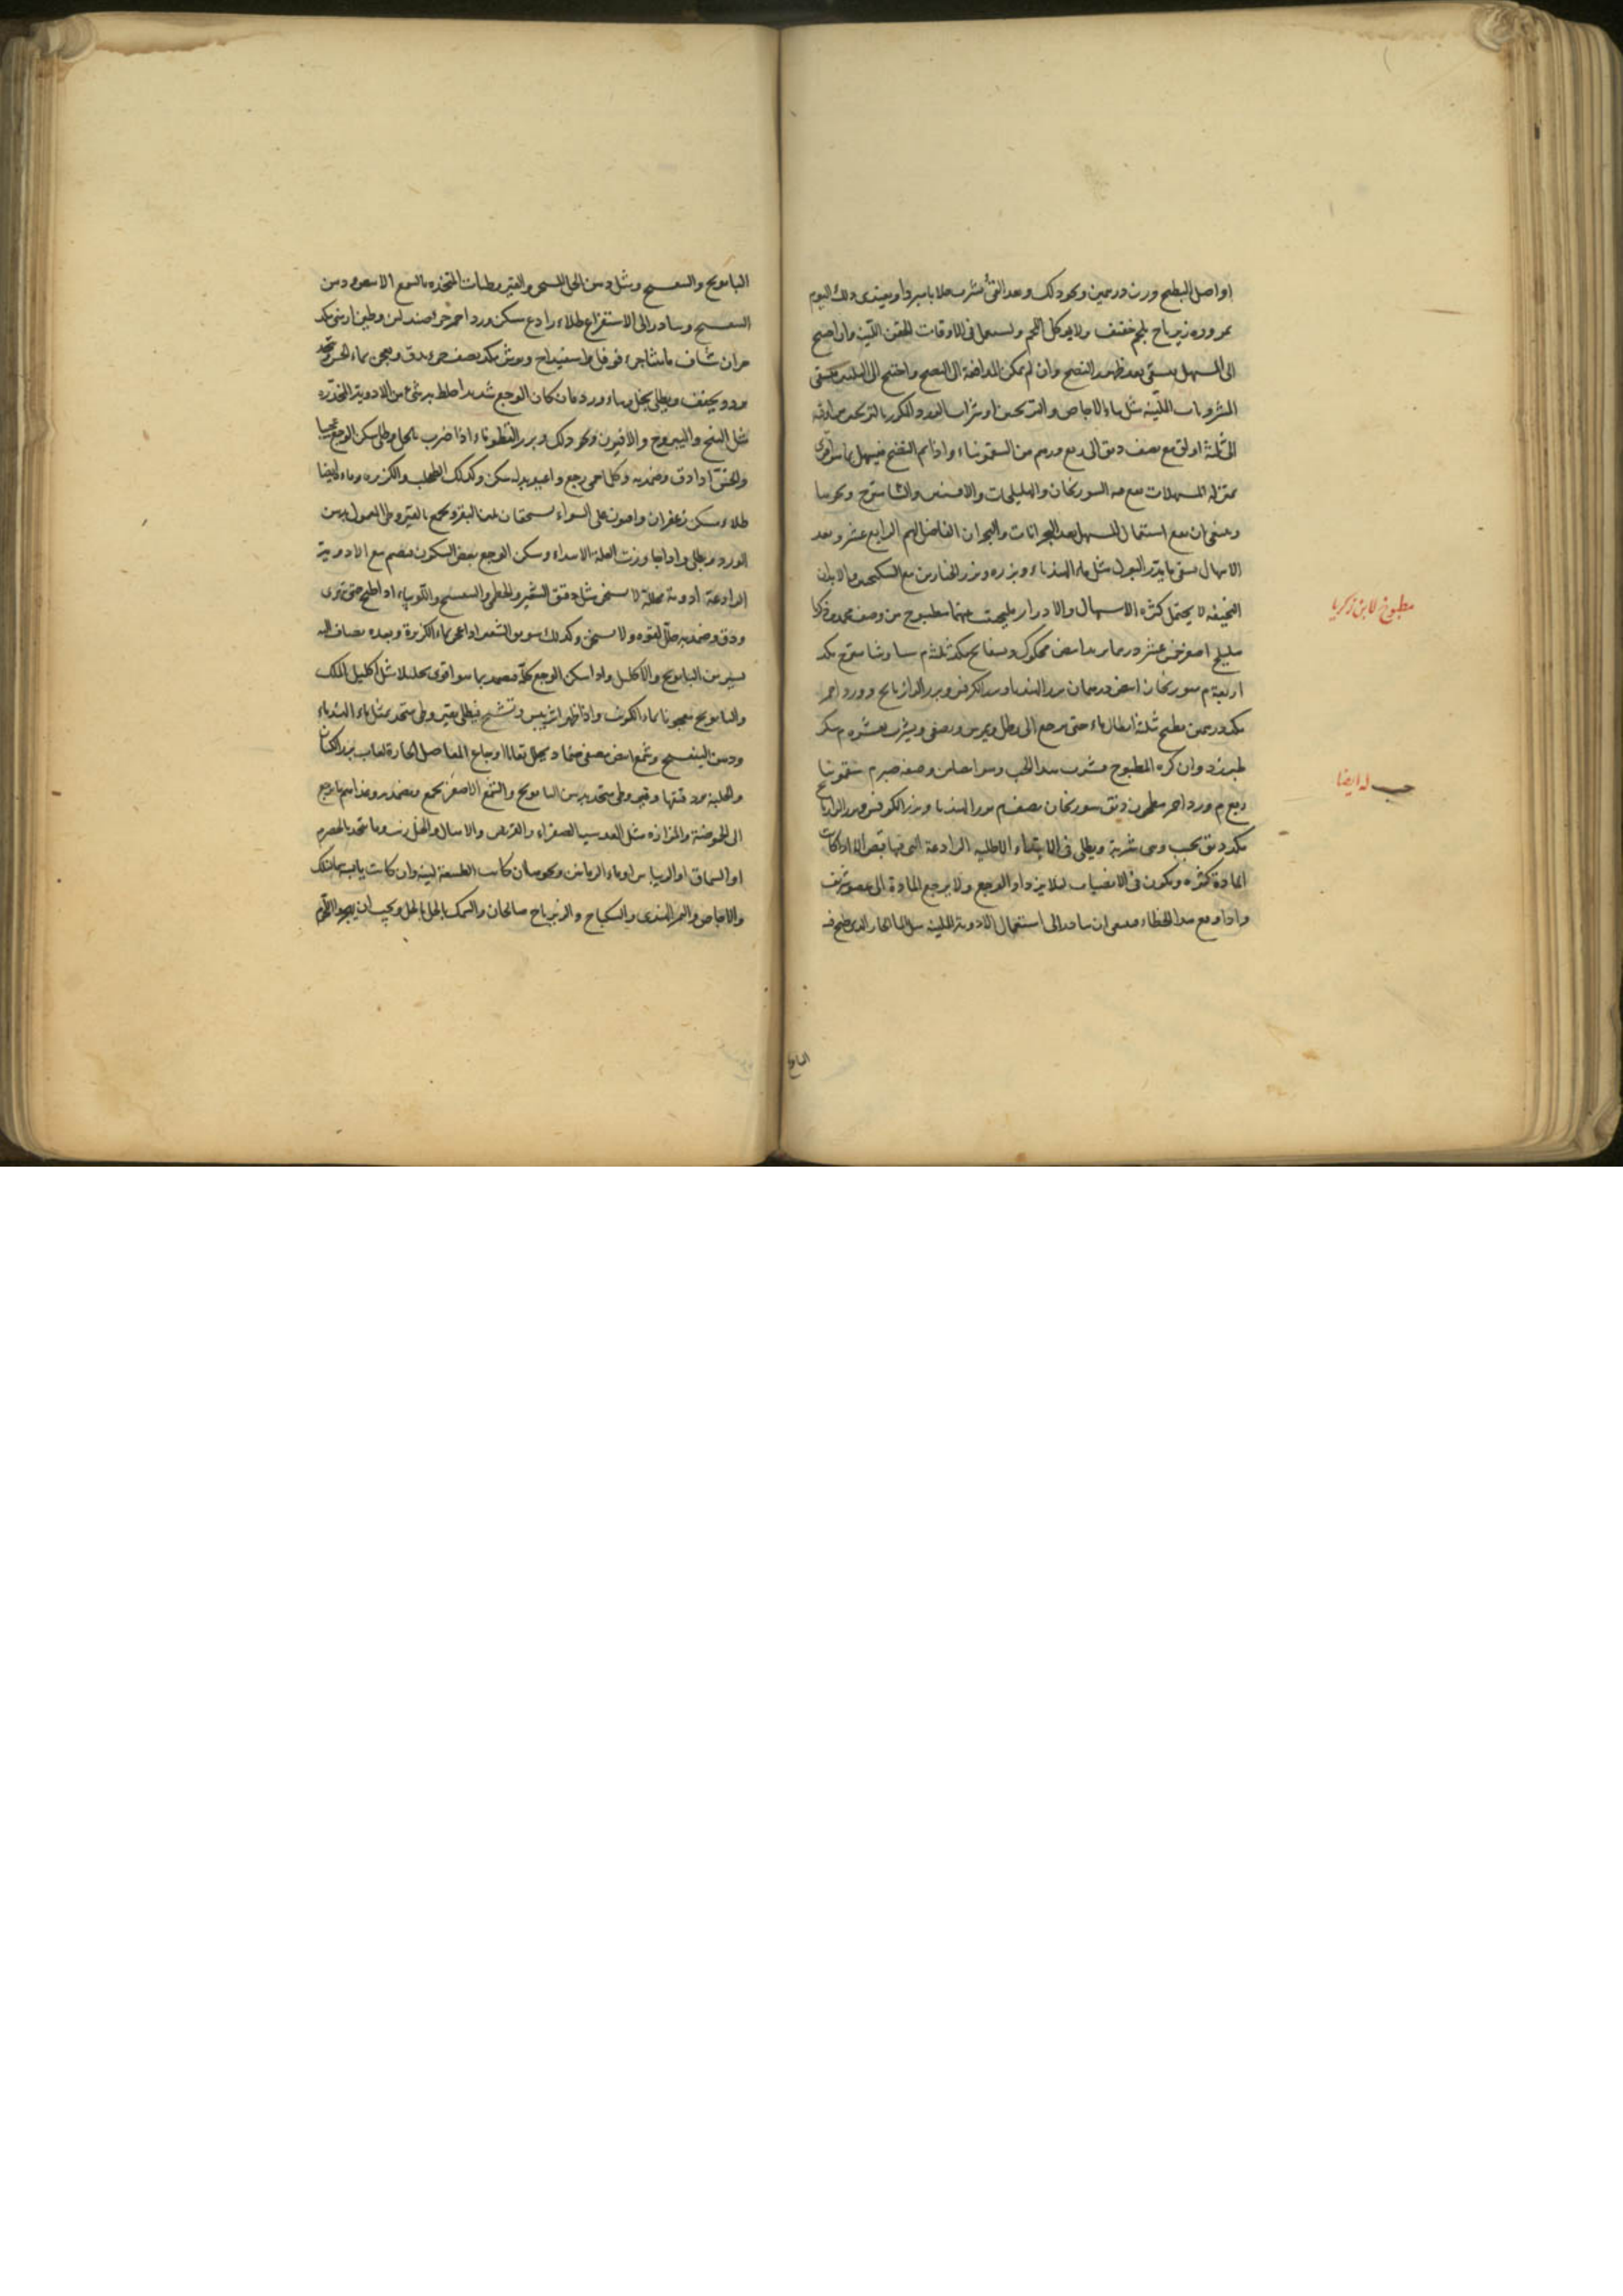 او اصل البطيخ وزن درهمين ونحو ذلك وبعد القئ يشرب جلابا مبردا ويغتذى ذلك اليوم
بمزورة زيرباج بلحم خفيف ولا يوكل اللحم ويستعمل فى الاوقات الحقن اللينة وان احتيج
الى المسهل يسقى بعد ظهور النضج وان لم يمكن المدافعة الى النضج واحتيج الى التليين يسقى
المشروبات اللينة مثل ماء الاجاص والترنجبين او شراب الورد المكرر بالترنجبين
الى ثلثة اواق مع نصف دنق الى ربع درهم من السقمونياء واذا تم النضج فيسهل بما هو اقوى
المسهلات مع السورنجان والهليلجات والافسنتين والشاهترج ونحوها
وينبغى ان يقع استعمال المسهل بعد البحرانات والبحران الفاضل لهم الرابع عشر وبعد
الاسهال يسقى ما يدر البول مثل ماء الهندباء وبزره وبزر الخيارين مع السكنجبين والابدان
النحيفة لا يحتمل كثرة الاسهال والادرار فليجتنب عنهما مطبوخ من وصف محمد بن زكريا
مطبوخ لابن زكريا
هليلج اصفر خمس عشر درهما بزر ابيض محكوك وبسفايج مكد ثلثة م سنا وشاهترج مكد
اربعة م سورنجان ابيض درهمان بزر الهندباء وبزر الكرفس وبزر الرازيانج وورد احمر
مكد درهمين يطبخ ثلثة ارطال ماء حتى يرجع الى رطل ويمرس ويصفى ويشرب بعشرة م سكر
طبرزد وان كره المطبوخ يشرب هذا الحب وهو ايضا من وصفه صبر م سقمونيا
حب له ايضا
ربع م ورد احمر مصطكى دنق سورنجان نصف م بزر الهندبا وبزر الكرفس وبزر الرازيانج
مكد دنق يحبب وهى شربة ويطلى فى الابتداء الاطلية الرادعة التى فيها قبض الا اذا كانت
المادة كثيرة ويكون فى الانصباب لئلا يزداد الوجع ولا يرجع المادة الى عضو شريف
واذا وقع هذا الخطاء فينبغى ان يبادر الى استعمال الادوية الملينة مثل الماء الحار الذى طبخ فيه
البابونج
البابونج والبنفسج ومثل دهن الخل المسخن والقيروطيات المتخذة بالشمع الابيض ودهن
البنفسج ويبادر الى الاستفراغ طلاء رادع مسكن ورد احمر جزء صندلين وطين ارمنى مكد
جزآن شياف ماميثا جزء فوفل واسفيداج وبوش مكد نصف جزء يدق ويعجن بماء الخس ويتخذ
ويجفف ويطلى بخل وماء ورد فان كان الوجع شديدا خلط به شئ من الادوية المخدرة
مثل البنج واليبروح والافيون ونحو ذلك وبزر القطوناء اذا ضرب بالخل وطلى سكن الوجع عجيبا
والخس اذا دق وضمد به وكلما حمى رجع واعيد بدله سكن وكذلك الطحلب والكزبرة وماءه ايضا
طلاء مسكن زعفران وافيون على السواء يسحقان بلبن البقر ويجمع بالقيروطى المعمول بدهن
الورد ويطلى واذا جاوزت العلة الابتداء وسكن الوجع بعض السكون فيضم مع الادوية
الرادعة ادوية محللة لا يسخن مثل دقيق الشعير والخطمى والبنفسج واللوبياء اذا طبخ حتى تهرى
ودق وضمد به حلل بقوة ولا يسخن وكذلك سويق الشعير اذا عجن بماء الكزبرة وبعده يضاف اليه
يسير من البابونج والاكليل واذا سكن الوجع كله فيضمد بما هو اقوى تحليلا مثل اكليل الملك
والبابونج معجونا بماء الكرنب واذا ظهر اثر يبس وتشنج فيطلى بقيروطى متخذ بمثل ماء الهندباء
ودهن البنفسج وشمع ابيض مصفى ضماد يحلل بقايا اوجاع المفاصل الحارة لعاب بزر الكتان
والحلبة ودقيقها وقيروطى متخذ بدهن البابونج والشمع الاصفر يجمع ويضمد به وغذاءهم ما يرجع
الى الحموضة والمزازة مثل العدسية الصفراء والقريص والاسال والخل زيت وما يتخذ بالحصرم
او السماق او الريباس او ماء الرمانين ونحوها ان كانت الطبيعة لينة وان كانت يابسة
والاجاص والتمر الهندى والسكباج والزيرباج صالحان والسمك بالخل ويجب ان يهجروا اللحم